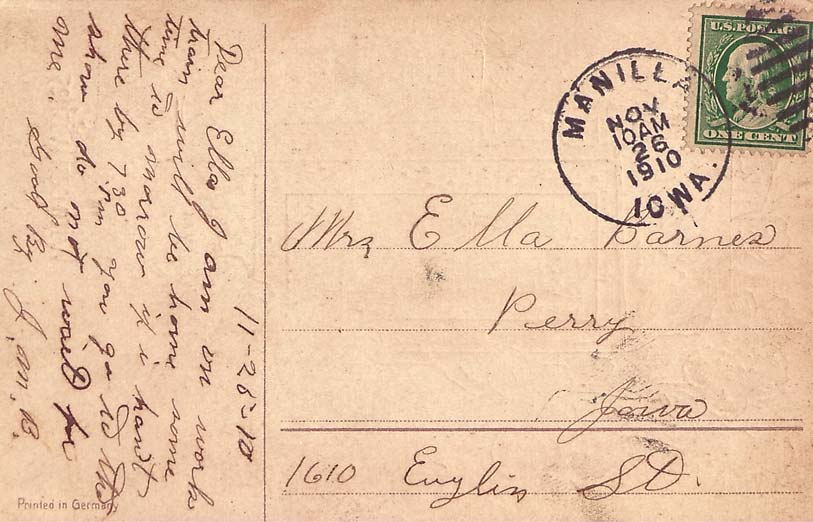 11-25-10
Dear Ella I am on work
train will be home some
time to morrow if i hant
there by 7.30 P.m you go to the
show do not wait for
me.
Good By J. M. B.
U.S. POSTAGE
ONE CENT
MANILLA
NOV
10 AM
26
1910
IOWA.
Mrs Ella Barnes
Perry
Iowa
1610 St.
Printed in Germany